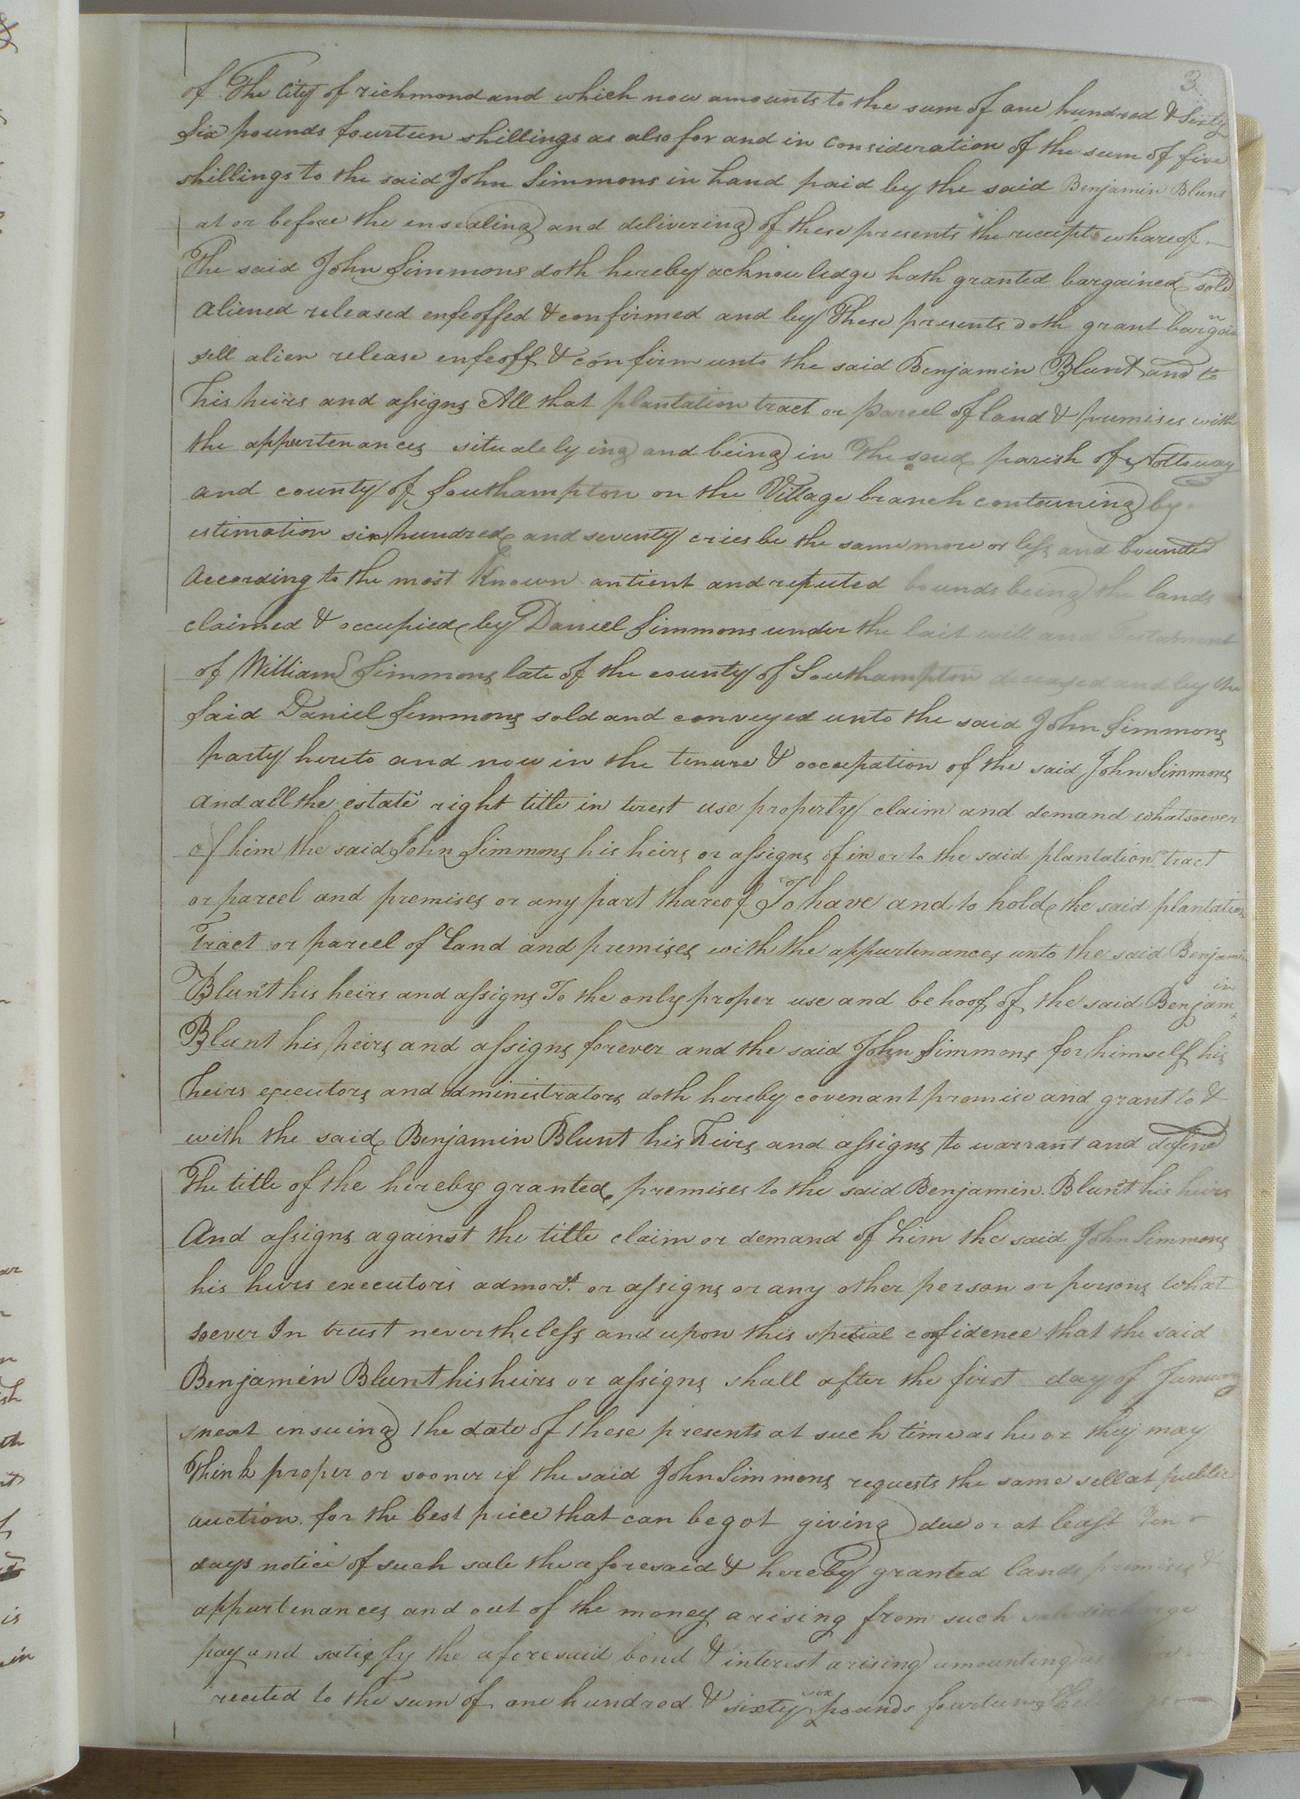 3
of The City of richmond and which now amounts to the sum of one hundred & Sixty
Six pounds fourteen shillings as also for and in consideration of the sum of five
shillings to the said John Simmons in hand paid by the said Benjamin Blunt
at or before the ensealing and delivering of these presents the receipt whareof
The said John Simmons doth hereby acknowledge hath granted bargained sold
aliened released enfeoffed & confirmed and by These presents doth grant bargain
sell alien release enfeoff & confirm unto the said Benjamin Blunt and to
his heirs and assigns All that plantation tract or parcel of land & premises with
the appertenances situate lying and being in the said parish of Nottoway
and county of Southampton on the Village branch containing by
estimation six hundred and seventy cries be the same more or less and bounded
According to the most Known antient and reputed bounds being the lands
claimed & occupied by Daniel Simmons under the last will and Testament
of William Simmons late of the county of Southampton deceased and by the
said Daniel Simmons sold and conveyed unto the said John Simmons
party hereto and now in the tenure & occupation of the said John Simmons
And all the estate right title in terest use property claim and demand whatsoever
of him the said John Simmons his heirs or assigns of in or to the said plantation tract
or parcel and premises or any part thareof To have and to hold the said plantation
Tract or parcel of Land and premises with the appurtenances unto the said Benjamin
Blunt his heirs and assigns To the only proper use and behoof of the said Benjamin
Blunt his heirs and assigns forever and the said John Simmons for himself his
heirs executors and administrators doth hereby covenant promise and grant to &
with the said Benjamin Blunt his heirs and assigns to warrant and defend
The title of the hereby granted premises to the said Benjamin Blunt his heirs
And assigns against the title claim or demand of him the said John Simmons
his heirs executors admors. or assigns or any other person or persons what
soever In trust nevertheless and upon this spetial confidence that the said
Benjamin Blunt his heirs or assigns shall after the first day of January
next ensuing the date of these presents at such time as he or they may
Think proper or sooner if the said John Simmons requests the same sell at public
auction for the best price that can be got giving due or at least Ten
days notice of such sale the aforesaid & hereby granted lands premises &
appurtenances and out of the money arising from such sale discharge
pay and satisfy the aforesaid bond & interest arising amounting as
recited to the sum of one hundred & sixty six pounds fourteen shillings